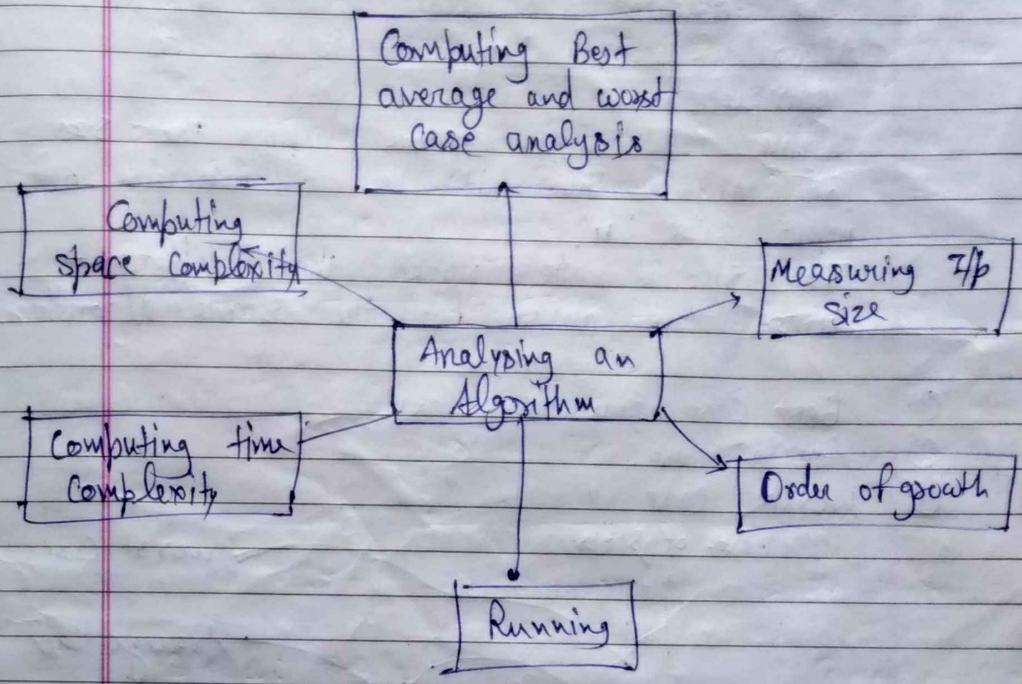 Computing Best
average and worst
case analysis
Computing
space Complexity
Measuring I/p
size
Analysing an
Algorithm
Computing time
Complexity
Order of growth
Running